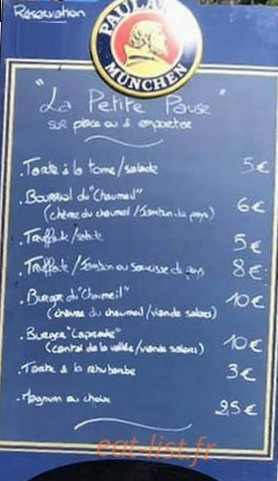 Réservation
PAULANER
MÜNCHEN
"La Petite Pause"
sur place ou à emporter
. Tarte à la tome/salade 5€
. Bourriol du "Chaumeil" 6€
(chèvre du chaumeil/Jambon du pays)
. Truffade/salade 5€
. Truffade/Jambon ou saucisse de pays 8€
. Burger du "Chaumeil" 10€
(chèvre du chaumeil/viande salers)
. Burger "Laprade" 10€
(cantal de la vallée/viande salers)
. Tarte à la rhubarbe 3€
. Magnum au choix 2,5€
eat-list.fr